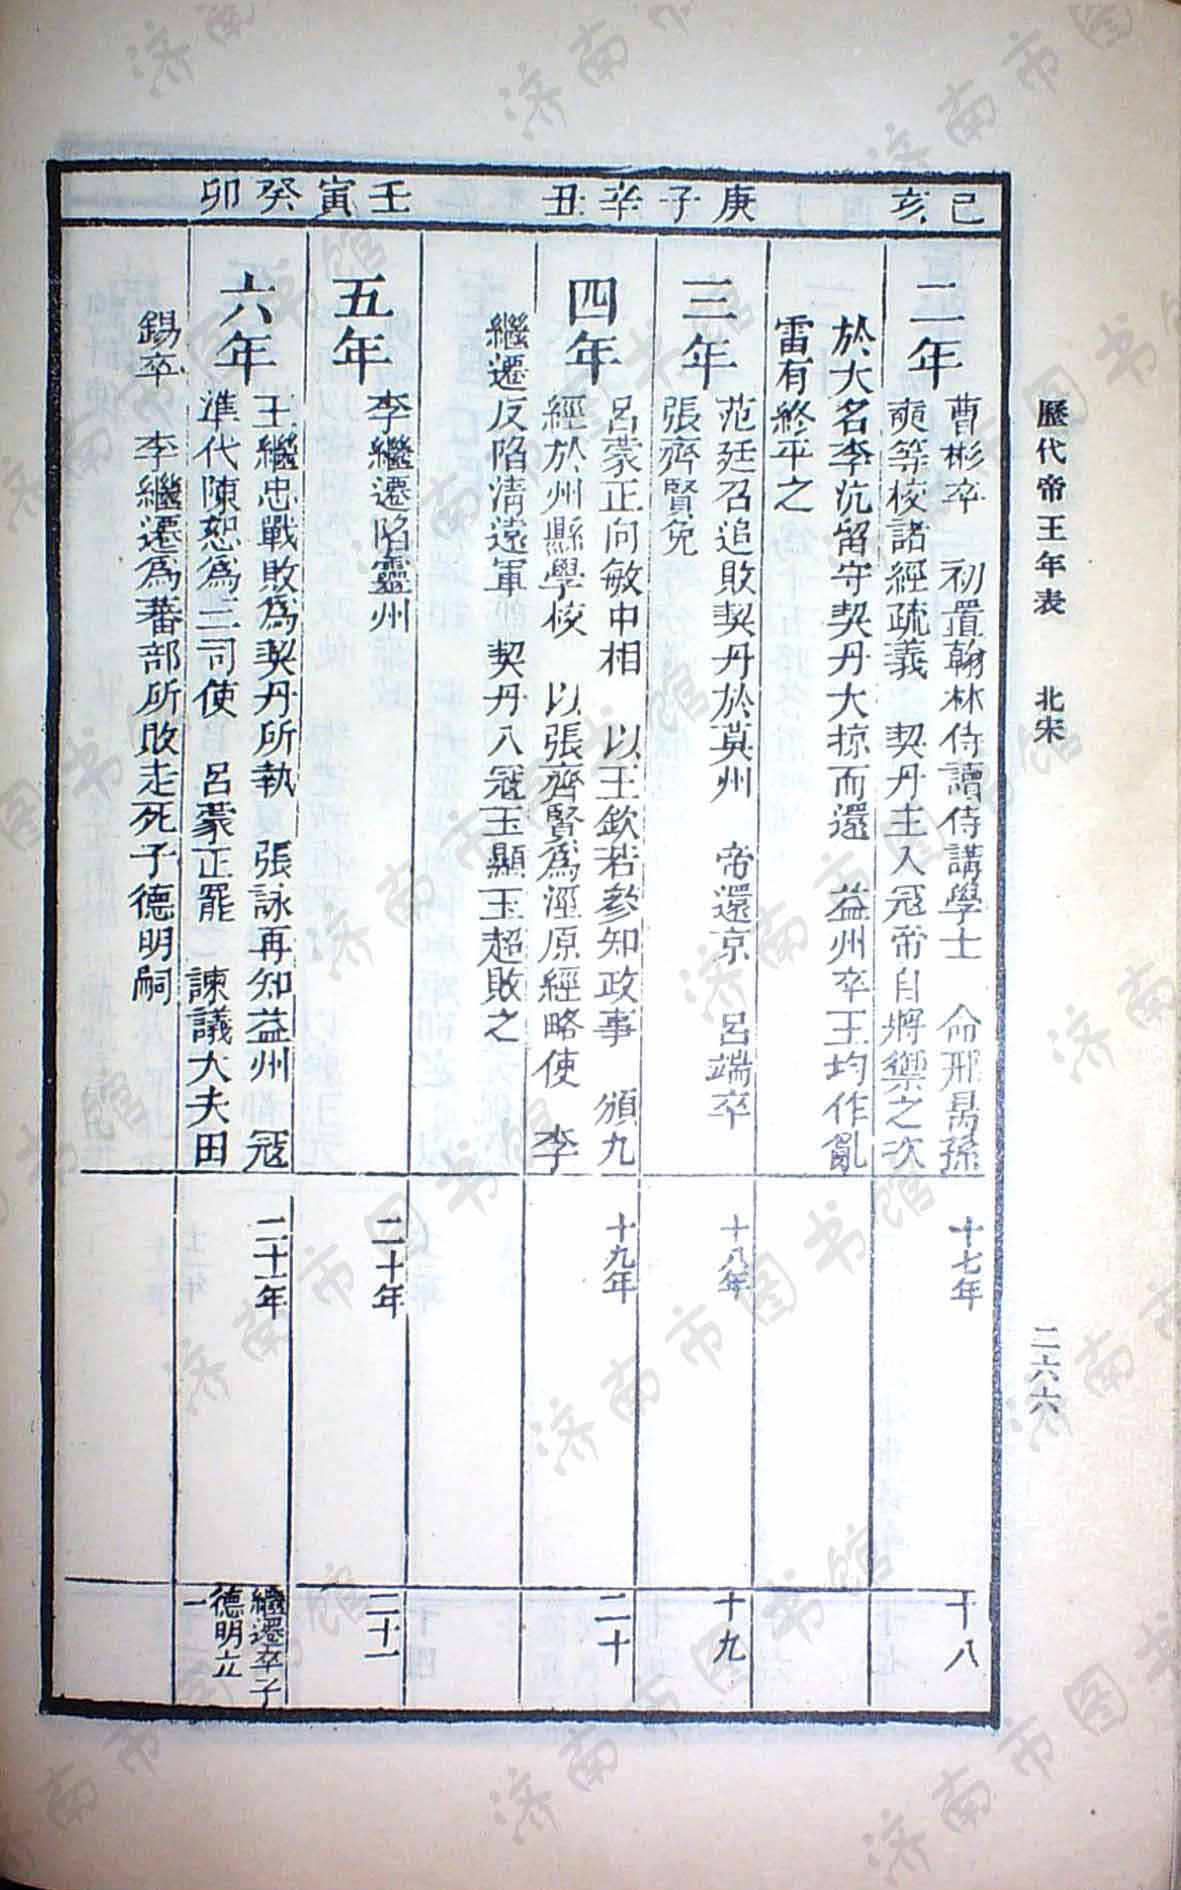 歷代帝王年表　北宋
二六六
己亥
庚子
辛丑
壬寅
癸卯
二年
曹彬卒　初置翰林侍讀侍講學士　命邢昺孫
奭等校諸經疏義　契丹主入冦帝自將禦之次
於大名李沆留守契丹大掠而還　益州卒王均作亂
雷有終平之
十七年
十八
三年
范廷召追敗契丹於莫州　帝還京　呂端卒
張齊賢免
十八年
十九
四年
呂蒙正向敏中相　以王欽若參知政事　頒九
經於州縣學校　以張齊賢為涇原經略使　李
繼遷反陷清遠軍　契丹入冦王顯王超敗之
十九年
二十
五年
李繼遷陷靈州
二十年
二十一
六年
王繼忠戰敗為契丹所執　張詠再知益州　冦
準代陳恕為三司使　呂蒙正罷　諫議大夫田
錫卒　李繼遷為蕃部所敗走死子德明嗣
二十一年
繼遷卒子
德明立
一
济南市图书馆